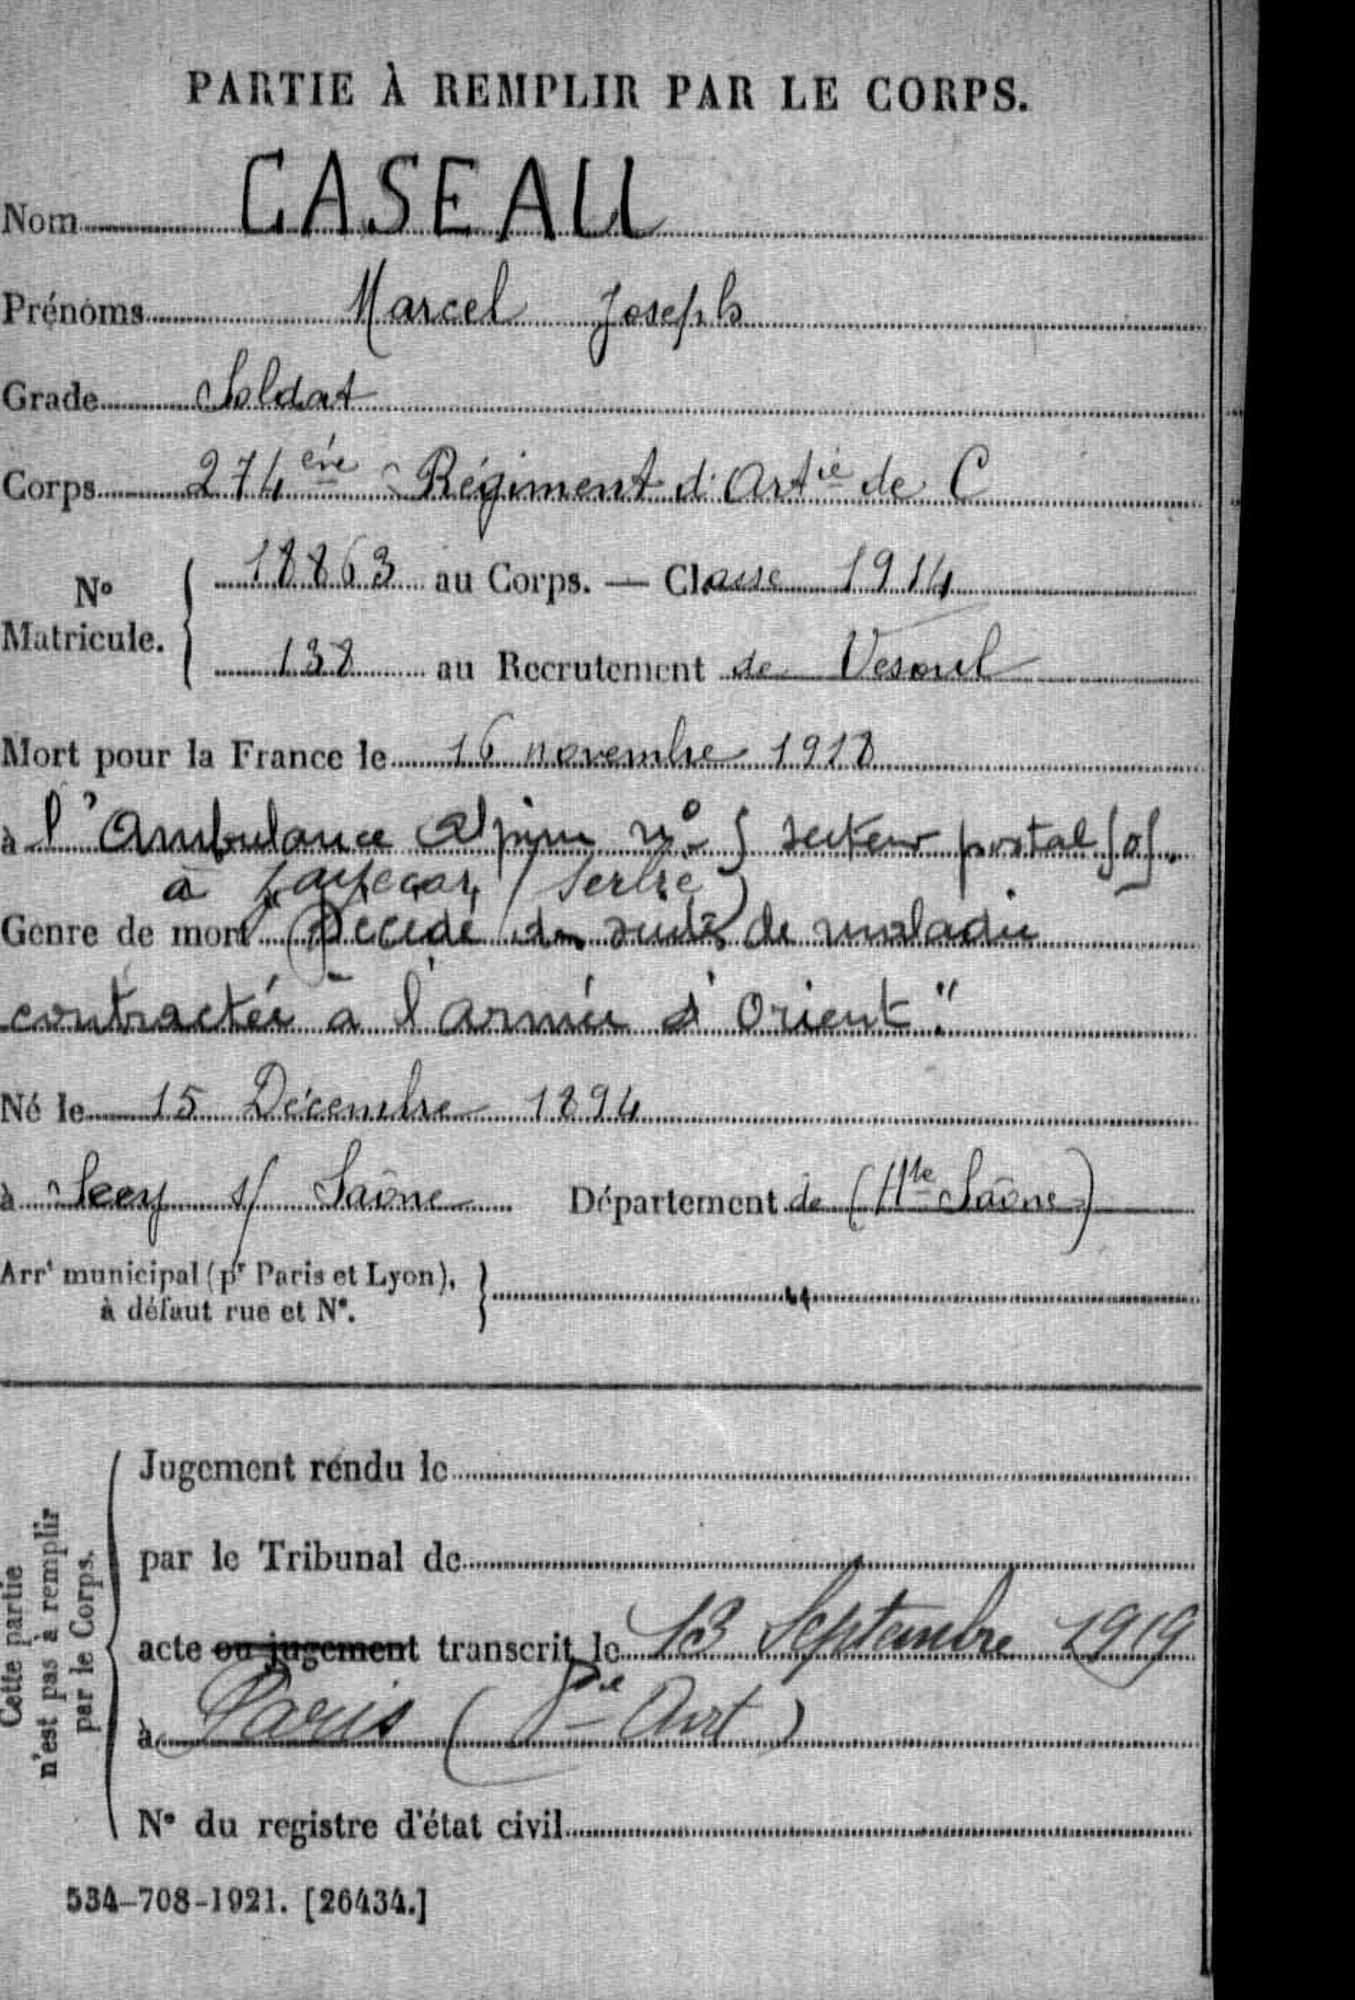 PARTIE À REMPLIR PAR LE CORPS.
Nom CASEAU
Prénoms Marcel Joseph
Grade Soldat
Corps 274ère Régiment d'Artie de C
No Matricule. { 18863 au Corps. — Classe 1914
138 au Recrutement de Vesoul
Mort pour la France le 16 novembre 1918
à l'Ambulance Alpine no 5 secteur postal 505.
à Zajecar (Serbie)
Genre de mort Décédé des suites de maladie
contractée à l'armée d'Orient"
Né le 15 Décembre 1894
à Scey s/ Saône Département de (Hte Saône)
Arrt municipal (pr Paris et Lyon), }
à défaut rue et No.
Cette partie
n'est pas à remplir
par le Corps.
Jugement rendu le
par le Tribunal de
acte ou jugement transcrit le 13 Septembre 1919
à Paris ( Arrt)
No du registre d'état civil
534-708-1921. [26434.]